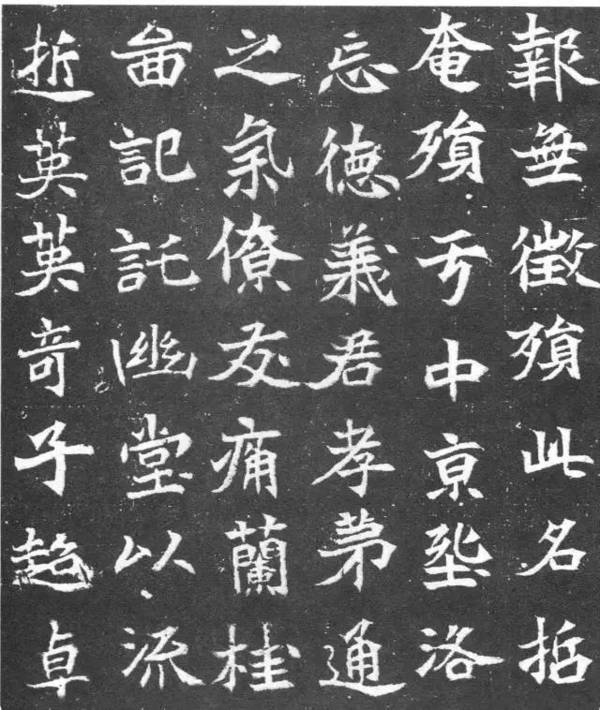 報無徵殞此名哲
奄殞于中京洛
忘德義君孝苐通
之氣僚友痛蘭桂
啚記託幽堂以流
逝英英奇子超卓